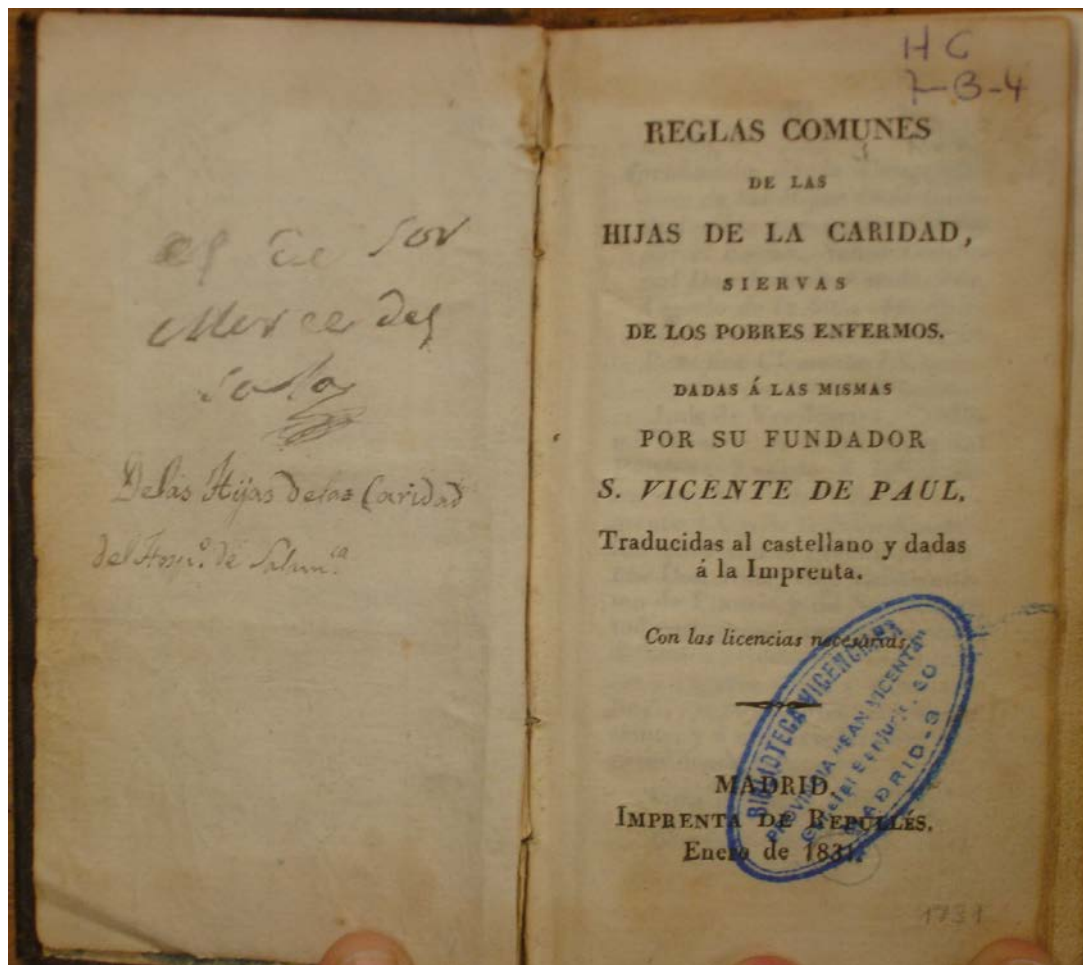 es de Sor
Mercedes
De las Hijas de las Caridad
del Hosp.º de Salam.ca
H C
7-B-4
REGLAS COMUNES
DE LAS
HIJAS DE LA CARIDAD,
SIERVAS
DE LOS POBRES ENFERMOS.
DADAS Á LAS MISMAS
POR SU FUNDADOR
S. VICENTE DE PAUL.
Traducidas al castellano y dadas
á la Imprenta.
Con las licencias necesarias.
BIBLIOTECA VICENCIANA
PROVINCIA "SAN VICENTE"
General Sanjurjo, 50
MADRID-3
MADRID.
IMPRENTA DE REPULLÉS.
Enero de 1831.
1731